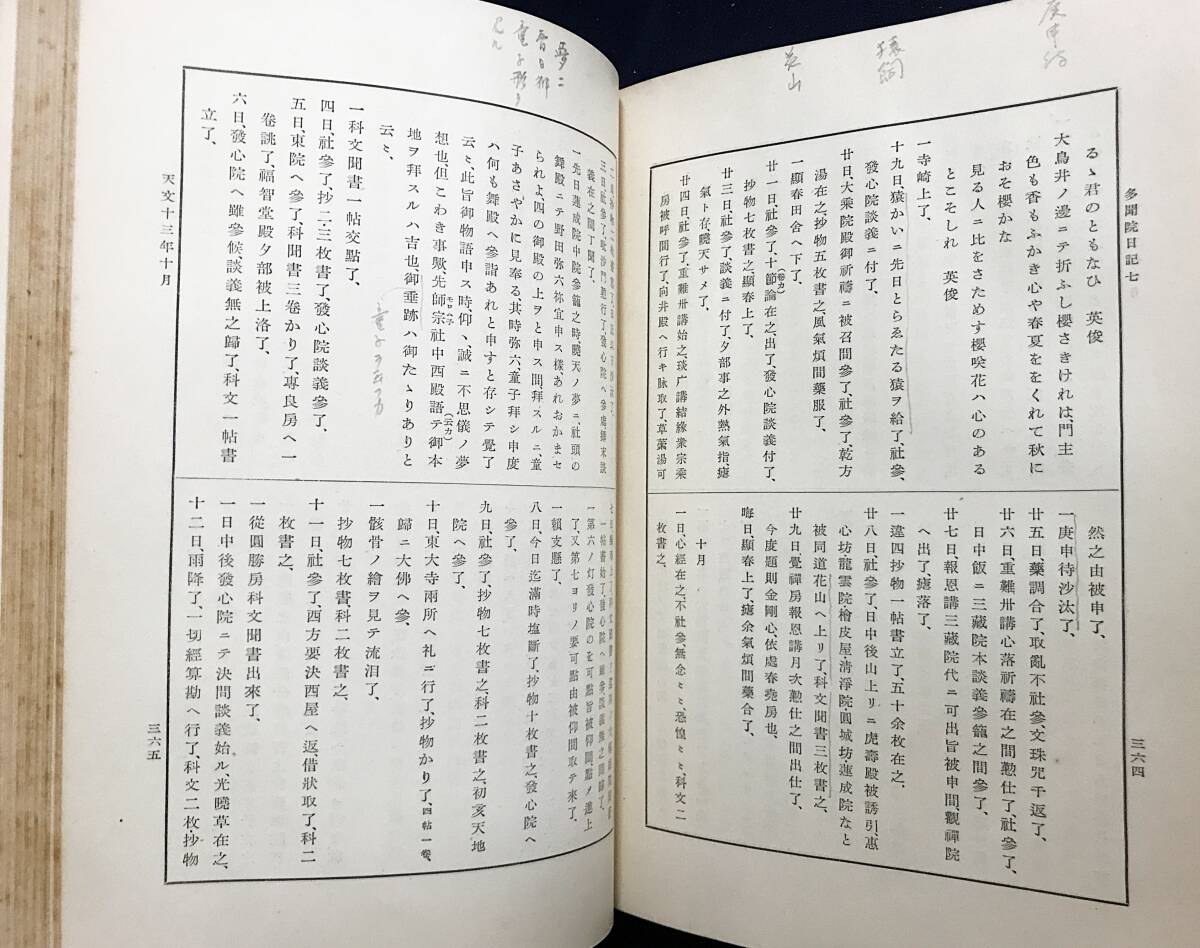 多聞院日記七
三六四
るゝ君のともなひ　英俊
大鳥井ノ邊ニテ折ふし櫻さきけれは、門主
色も香もふかき心や春夏ををくれて秋に
おそ櫻かな
見る人ニ比をさためす櫻咲花ハ心のある
とこそしれ　英俊
一寺崎上了、
十九日、猿かいニ先日とらゑたる猿ヲ給了、社參、
發心院談義ニ付了、
廿日、大乘院殿御祈禱ニ被召間參了、社參了、乾方
湯在之、抄物五枚書之、風氣煩間藥服了、
一顯春田舍ヘ下了、
廿一日、社參了、十節論在之、出了、發心院談義付了、
(卷カ)
抄物七枚書之、顯春上了、
廿三日、社參了、談義ニ付了、夕部事之外熱氣指、瘧
氣ト存、曉天サメ了、
廿四日、社參了、重難卅講始之、琰广講結緣衆宗乘
房被呼間行了、向井殿ヘ行キ脉取了、草藥湯可
然之由被申了、
一庚申待沙汰了、
廿五日、藥調合了、取亂不社參、文珠咒千返了、
廿六日、重難卅講心落祈禱在之間懃仕了、社參了、
日中飯ニ三藏院本談義參籠之間參了、
廿七日、報恩講三藏院代ニ可出旨被申間、觀禪院
ヘ出了、瘧落了、
一違四抄物一帖書立了、五十余枚在之、
廿八日、社參了、日中後山上リニ虎壽殿被誘引、惠
心坊、龍雲院、檜皮屋、淸淨院、圓城坊、蓮成院なと
被同道、花山ヘ上リ了、科文聞書三枚書之、
廿九日、覺禪房報恩講月次懃仕之間出仕了、
今度題則金剛心、依處春堯房也、
晦日、顯春上了、瘧余氣煩間藥合了、
十月
一日、心經在之、不社參、無念ミミ、恐惶ミミ、科文二
枚書之、
三日、社參了、毗沙門道行了、發心院ヘ參處、擇末談
義在之間丁聞了、
一先日蓮成院中院參籠之時、曉天ノ夢ニ、社頭の
舞殿ニテ野田弥六祢宜申ス樣、あれおかませ
られよ四の御殿の上ヲと申ス間、拜スルニ、童
子あさやかに見奉る、其時弥六、童子拜シ申度
ハ何も舞殿ヘ參詣あれと申すと存シテ覺了
云ミ、此旨御物語申ス時仰ヽ、誠ニ不思儀ノ夢
想也、但こわき事歟、先師宗社中西殿語テ御本
(云カ)
地ヲ拜スルハ吉也、御垂跡ハ御たゝりありと
云ミ、
一科文聞書一帖交點了、
四日、社參了、抄二三枚書了、發心院談義參了、
五日、東院ヘ參了、科聞書三卷かり了、專良房ヘ一
卷誂了、福智堂殿夕部被上洛了、
六日、發心院ヘ雖參候、談義無之歸了、科文一帖書
立了、
一第六ノ灯發心院のを可點旨被仰間、點ノ進上
了、又第七ヨリノ要可點由被仰間取テ來了、
一願支懸了、
八日、今日迄滿時塩斷了、抄物十枚書之、發心院ヘ
參了、
九日、社參了、抄物七枚書之、科二枚書之、初亥天地
院ヘ參了、
十日、東大寺雨所ヘ礼ニ行了、抄物かり了、四帖一卷、
歸ニ大佛ヘ參、
一骸骨ノ繪ヲ見テ流泪了、
抄物七枚書、科二枚書之、
十一日、社參了、西方要決西屋ヘ返、借狀取了、科二
枚書之、
一從圓勝房科文聞書出來了、
一日中後發心院ニテ決問談義始ル、光曉草在之、
十二日、雨降了、一切經算勘ヘ行了、科文二枚、抄物
天文十三年十月
三六五
庚申待
猿飼
花山
夢ニ
春日御
童子形ヲ
見ル
童子ヲ云フカ